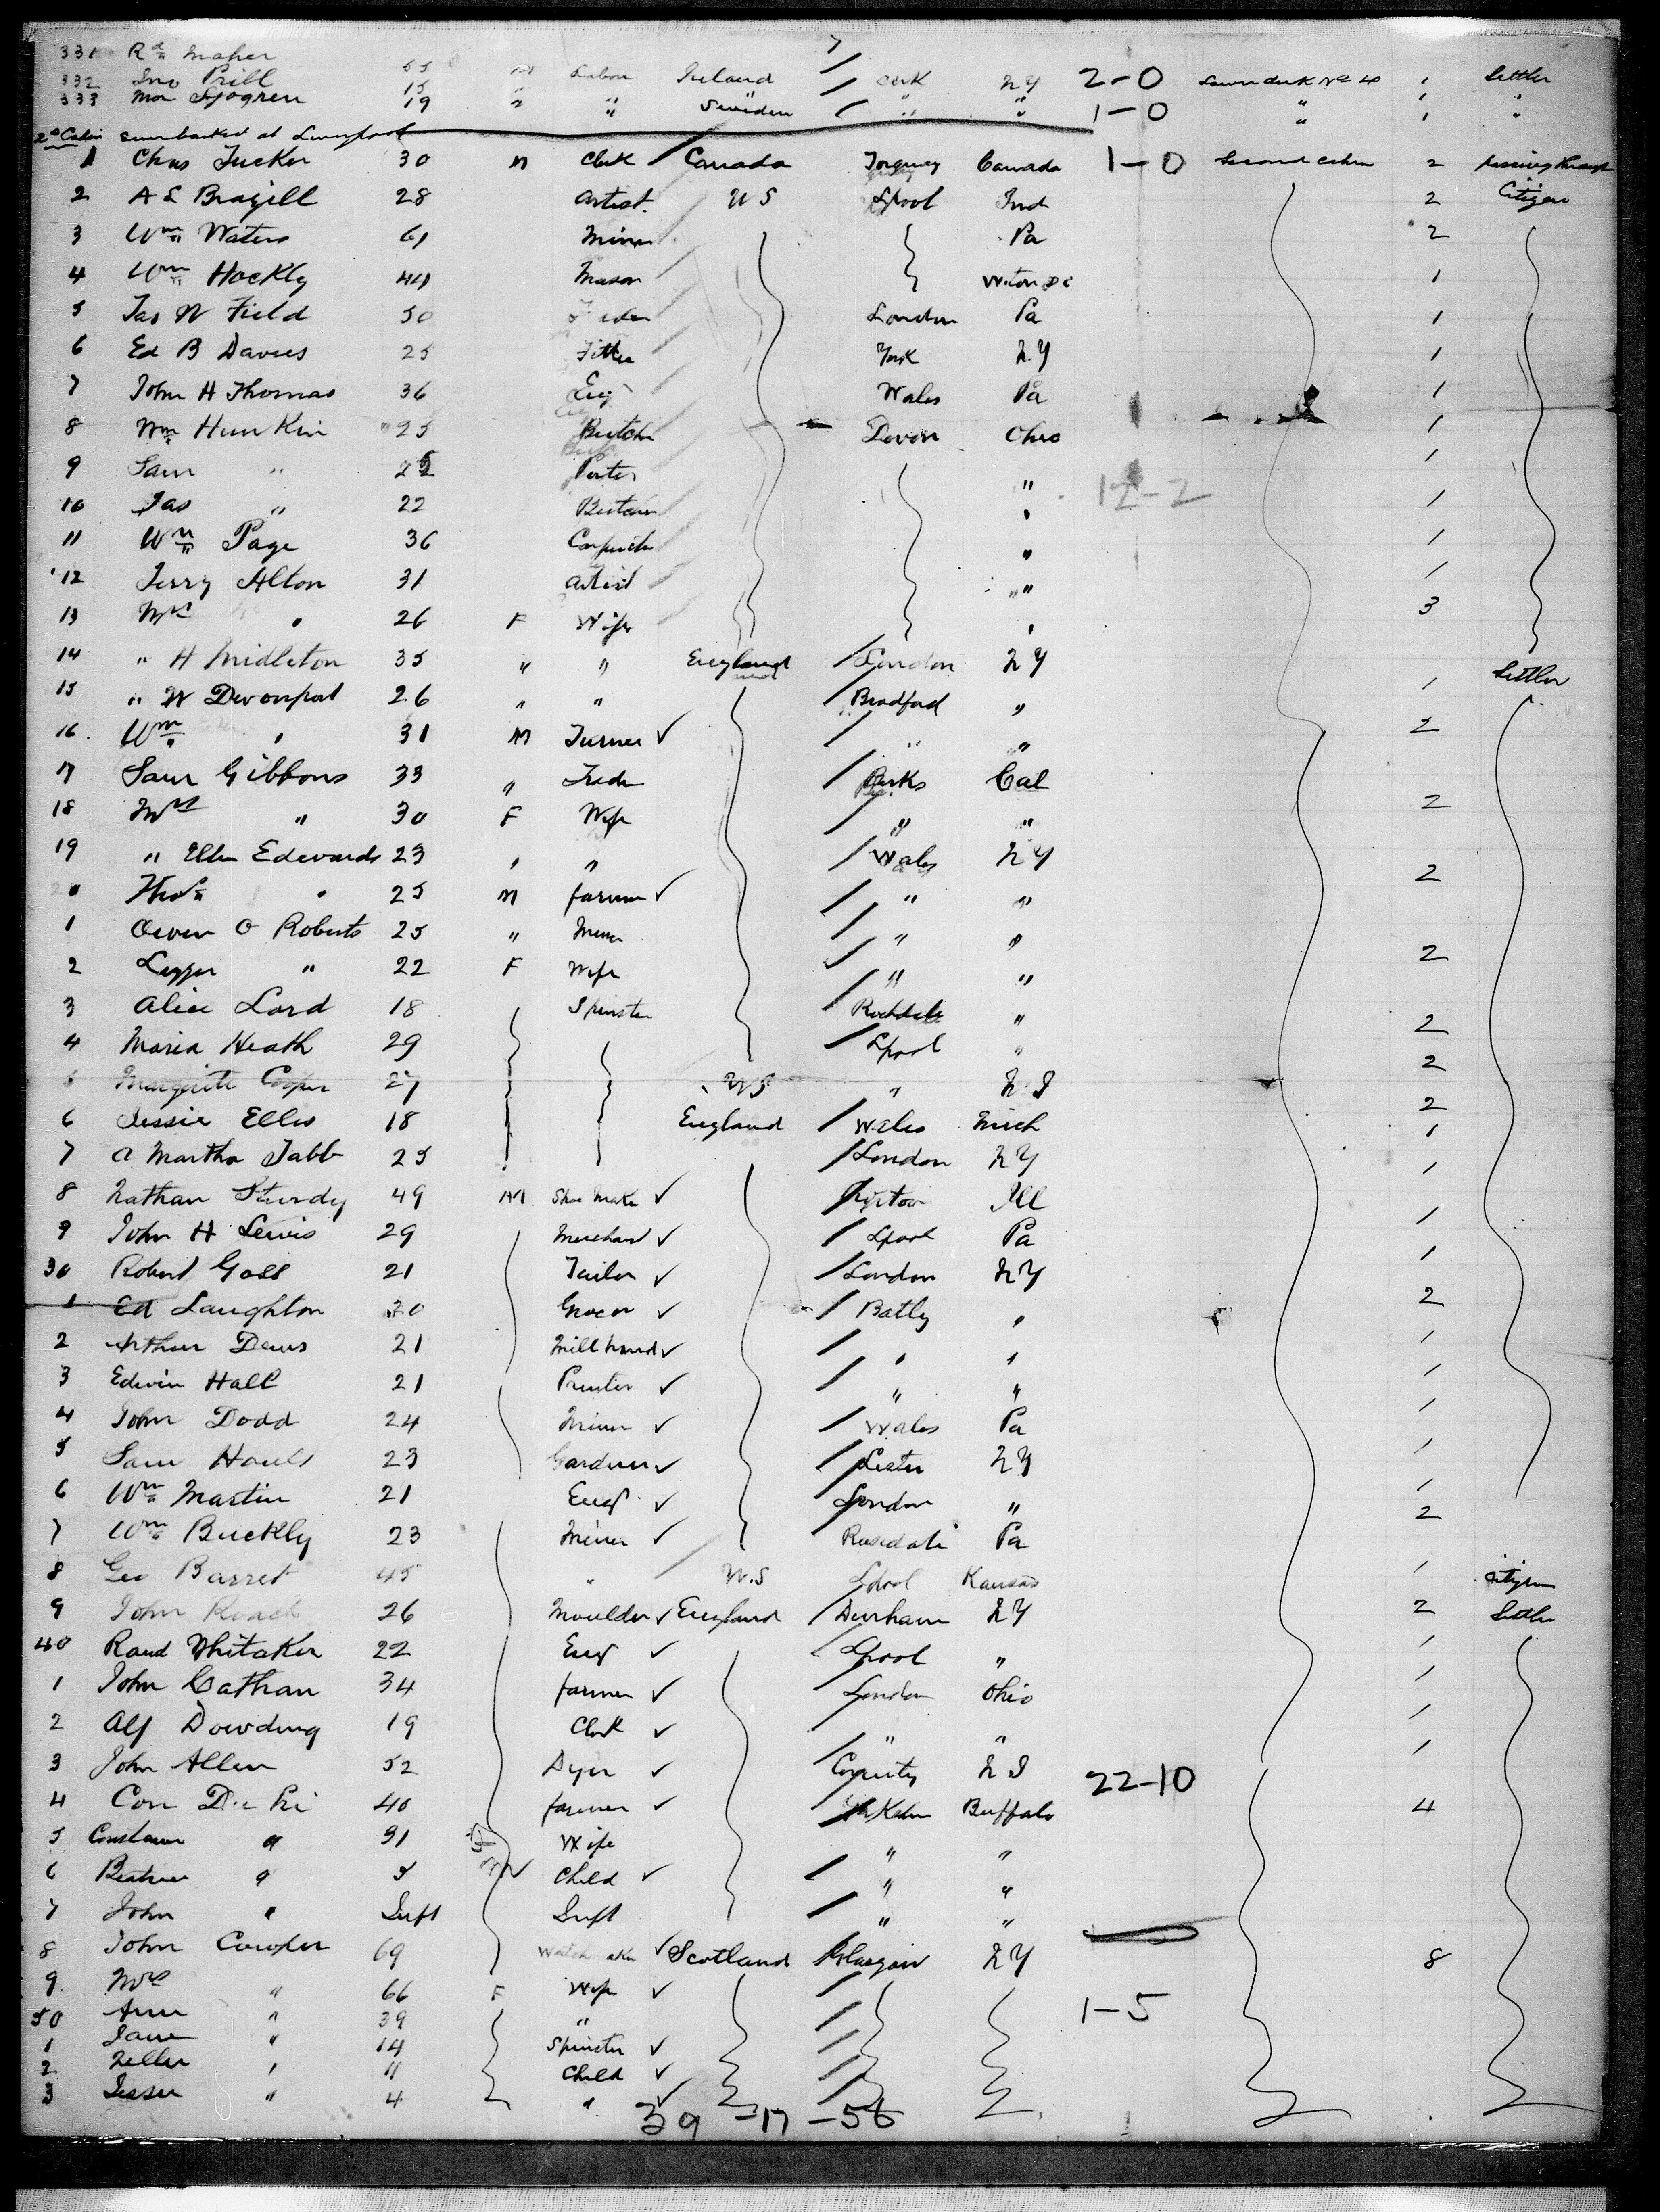 7
331 Rd Maher
332 Jno Prill 15 M Labor Ireland / Cork NY 2-0 1 Settler
333 Sjogren 19 " " Sweden / " " 1-0 " 1 "
2d Cabin embarked at Liverpool
1 Chas Tucker 30 M Clerk Canada Torquay Canada 1-0 Second Cabin 2 passing through
2 A E Bragill 28 Artist US Lpool Ind 2 Citizen
3 Wm Waters 61 Miner Pa 2
4 Wm Hockly 44 Mason 1
5 Jas W Field 30 London Pa 1
6 Ed B Davies 25 Fitter York N.Y 1
7 John H Thomas 36 Eng Wales Pa 1
8 Wm Hunkin 25 Butcher Devon Ohio 1
9 Sam " Porter " 12-2 1
10 Jas " 22 Butcher " 1
11 Wm Page 36 Carpenter " 1
12 Jerry Alton 31 Artist " 1
13 Mrs " 26 F Wife " 3
14 " H Midleton 35 " " England / London NY Settler
15 " W Devonport 26 " " Bradford " 1
16 Wm " 31 M Turner ✓ / " " 2
17 Sam Gibbons 33 " Trader / Berks Cal
18 Mrs " 30 F Wife / " " 2
19 " Ellen Edwards 23 " " / Wales NY
20 Thos " 25 M farmer ✓ / " " 2
1 Owen O Roberts 25 " Miner / " "
2 " 22 F Wife / " " 2
3 Alice Lord 18 Spinster / Rochdale "
4 Maria Heath 29 / Lpool " 2
5 Cooper 27 U S " 2
6 Jessie Ellis 18 England / Wales Mich 2
7 A Martha Tabb 25 / London NY 1
8 Nathan Sturdy 49 M Shoe Maker ✓ / Ill 1
9 John H Lewis 29 Merchant ✓ / Lpool Pa 1
30 Robert Goss 21 Tailor ✓ / London NY 1
1 Ed Laughton 20 Grocer ✓ / Batly " 2
2 Arthur Dews 21 Mill hand ✓ / " " 1
3 Edwin Hall 21 Printer ✓ / " " 1
4 John Dodd 24 Miner ✓ / Wales Pa 1
5 Sam 23 Gardner ✓ / NY 1
6 Wm Martin 21 Eng ✓ / London " 1
7 Wm Buckly 23 Miner ✓ Pa 2
8 Geo Barret 45 " U.S Lpool Kansas 1 Citizen
9 John Roach 26 Moulder ✓ England / Durham NY 2 Settler
40 Whitaker 22 Eng ✓ Lpool " 1
1 John Cathan 34 farmer ✓ London Ohio 1
2 Alf Dowding 19 Clerk ✓ / " " 1
3 John Allen 52 Dyer ✓ / 22-10 1
4 Con 40 farmer ✓ Buffalo 4
5 " 31 Wife " "
6 " 5 Child ✓ / " "
7 John " Inft Inft / " "
8 John Cowper 69 ✓ Scotland / Glasgow NY 8
9 Mrs " 66 F Wife ✓ / 1-5
50 Ann " 39 " /
1 Jane " 14 Spinster ✓ /
2 Nellie " 11 Child ✓ /
3 Jessie " 4 " ✓ /
39 -17 -56